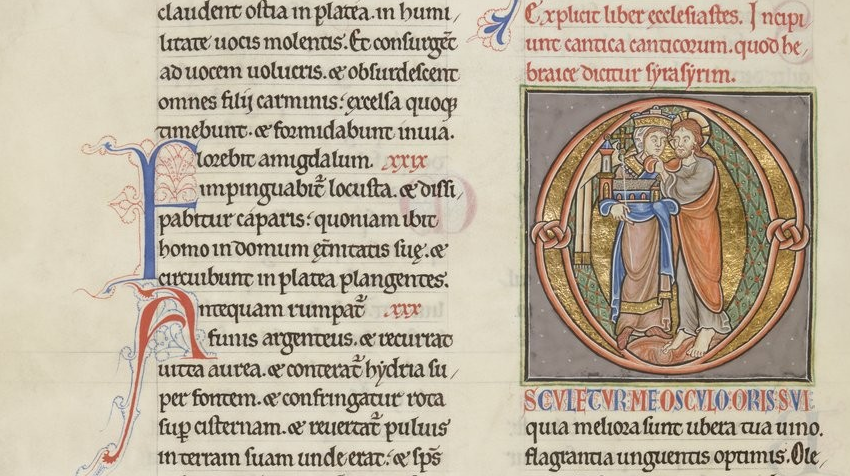 claudent ostia in platea. in humi/
litate uocis molentis. Et consurgēt
ad uocem uolucris. & obsurdescent
omnes filij carminis: excelsa quoq;
timebunt. & formidabunt in uia.
Florebit amigdalum. xxix
impinguabit̄ locusta. & dissi/
pabitur caparis: quoniam ibit
homo in domum et̄nitatis suę. &
circuibunt in platea plangentes.
Antequam rumpat̄ xxx
funis argenteus. & recurrat
uitta aurea. & conterat̄ hydria su/
per fontem. & confringatur rota
sup̱ cisternam. & reuertat̄ puluis
in terram suam unde erat: & sp̄s
Explicit liber ęcclesiastes. Incipi
unt cantica canticorum. quod he/
braice dicitur syrasyrim.
OSCULETUR ME OSCULO ORIS SUI
quia meliora sunt ubera tua uino.
flagrantia unguentis optimis. Ole/